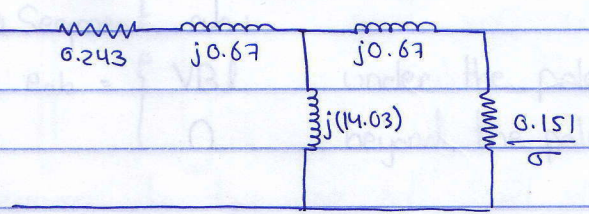 0.243 j0.67 j0.67
j(14.03)
0.151
σ